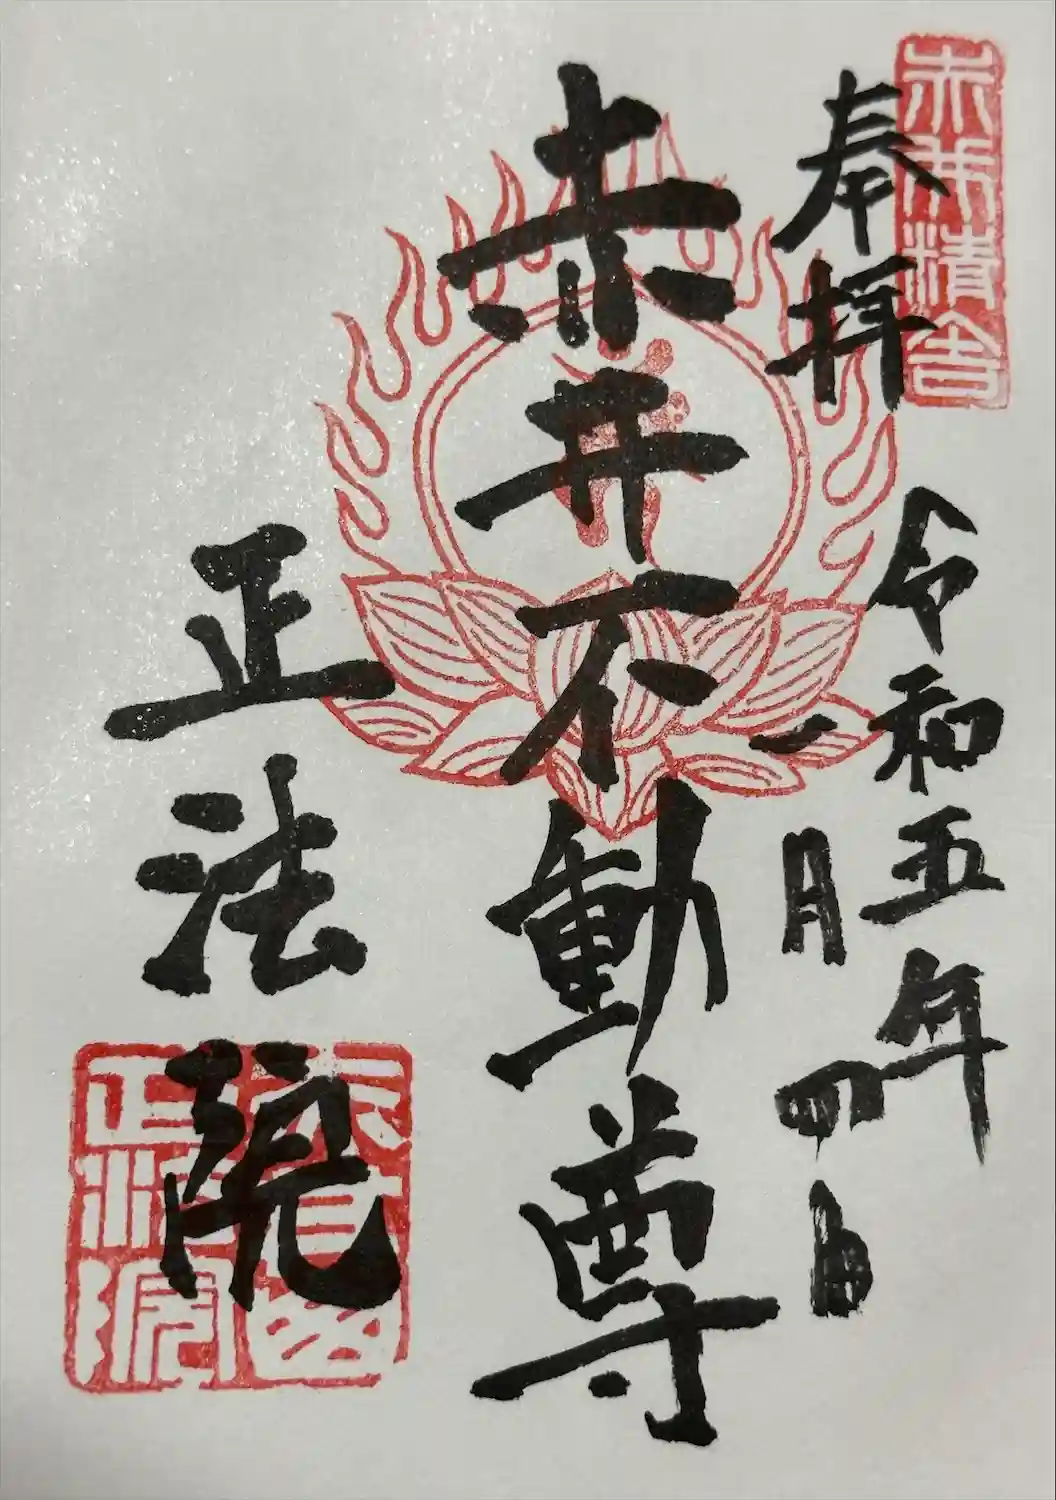 赤井精舎
奉拝
令和五年
一月四日
赤井不動尊
正法院
正法院